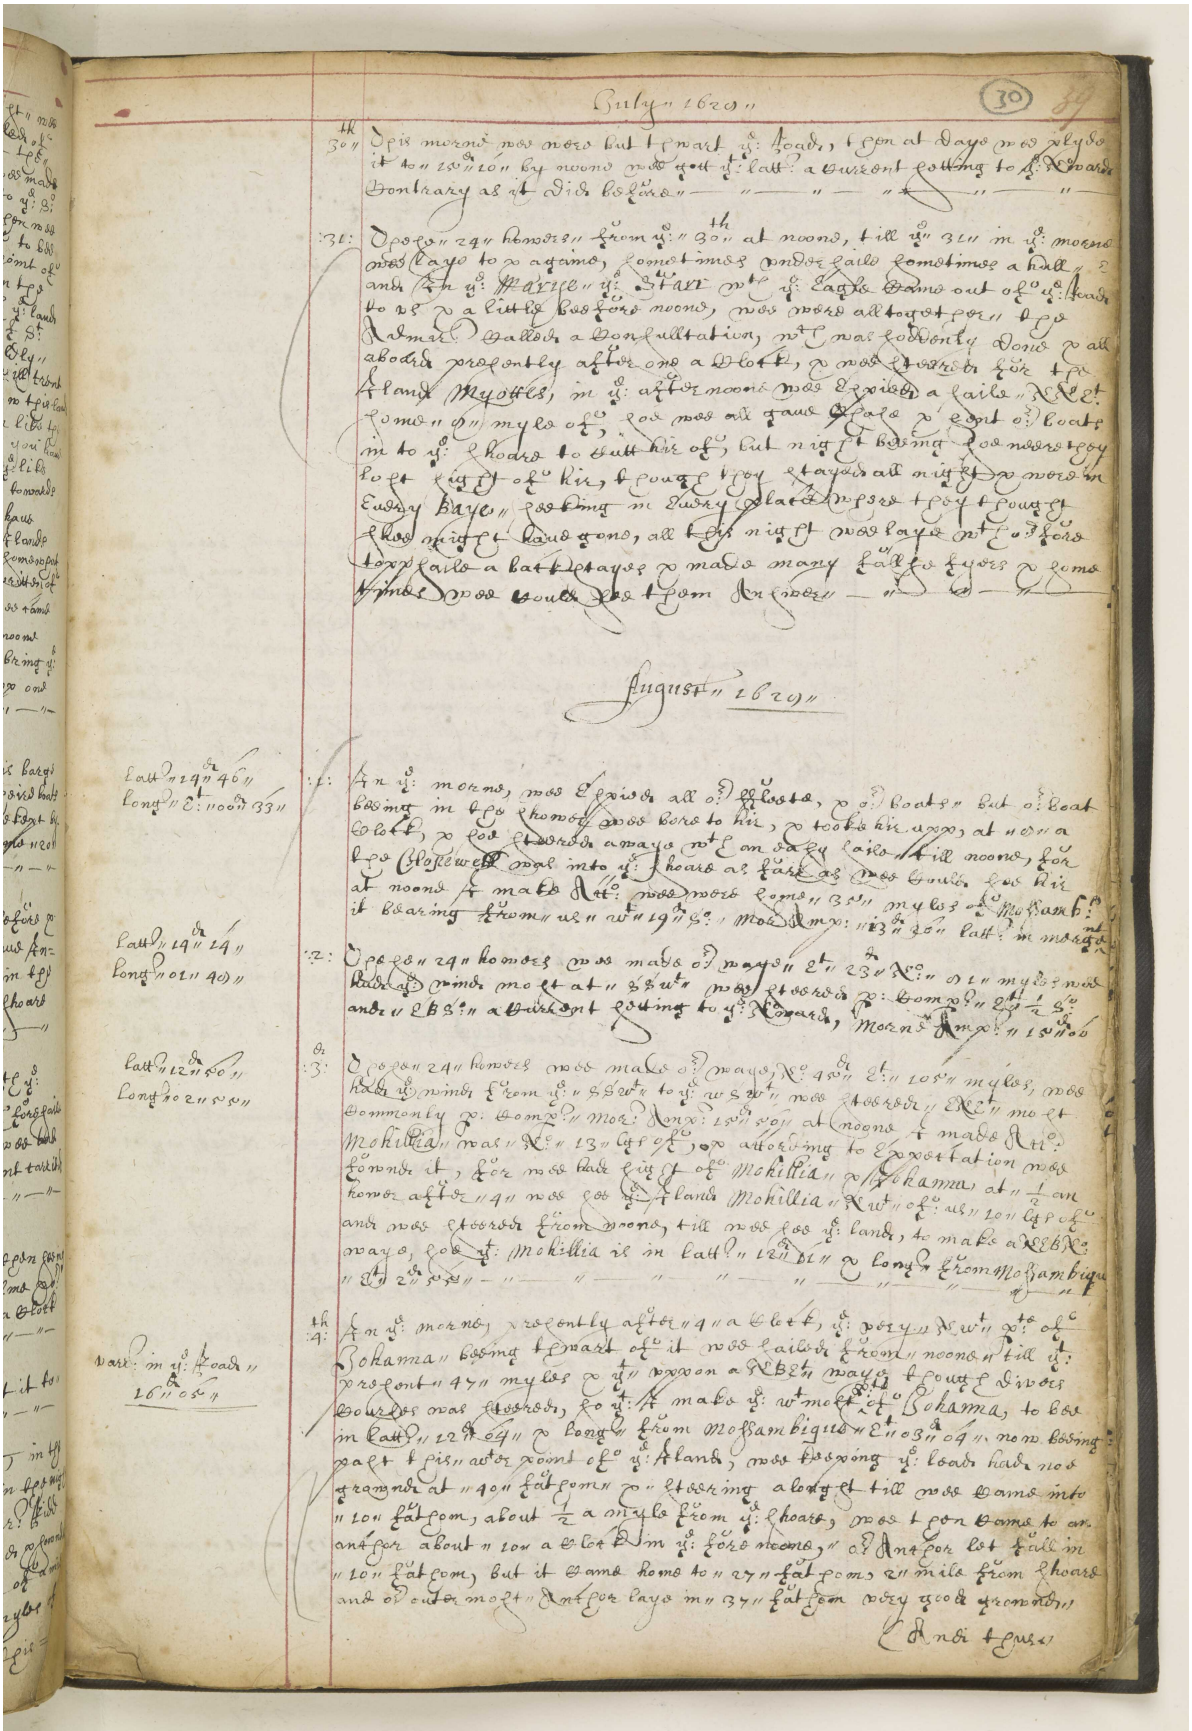 July " 1629 "
30
59
30th This morne wee were but thwart ye: Roade, then at daye wee plyde
it to " 15d 16 " by noone wee gott yt: latt: a Current setting to ye: NEward
Contrary as it did before "
:31: These " 24 " howers " from ye: " 30th " at noone, till ye " 31 " in ye: morne
wee laye to & againe, sometimes under saile sometimes a hull "
and In ye: Morne " ye: Starr wth ye: Eagle Came out of ye: Roade
to us & a little beefore noone, wee were alltogether " the
Admir: Called a Consulltation, wch was soddenly done & all
aboard presently after one a Clock, & wee steered for the
Iland Myottes, in ye: afternoone wee Espied a saile " NEEt:
some " 9 " myle of, soe wee all gave Chase & sent or: boats
in to ye: shoare to Cutt hir of, but night beeing soe neere they
lost sight of hir, though they stayed all night & were in
Every Baye " seeking in Every place where they thought
shee might have gone, all this night wee laye wth or: fore
toppsaile a backstayes & made many fallse fyers & some
times wee Could see them Answer "
August " 1629 "
Latt: " 14d " 46 "
Long: " Et: " 00d 33 "
:1: In ye: morne, wee Espied all or: ffleete, & or: boats " but or: boat
beeing in the shower wee bore to hir, & tooke hir upp, at " 9 " a
Clock, & soe steered awaye wth an easy saile " till noone, for
the Hopewell was into ye: shoare as farr as wee Could see hir
at noone I make Acco: wee were some " 35 " myles of Mossamb:
it bearing from " us " Wt " 19d So: " Mor: Amp: " 13d 36 " latt: in merge nt
Latt: " 14d " 14 "
Long: " 01 " 49 "
:2: These " 24 " howers wee made or: waye " Et " 23d " No: " 91 " myles wee
had ye: wind most at " SSWt " wee steered p: Comp: " Et 1/2 So
and " EBS: " a Current setting to ye: NEward, Morne Amp: " 15d 00
Latt: " 12d " 50 "
Long: " 02 " 55 "
:3:d These " 24 " howers wee make or: waye, No: 45d " Et: " 105 " myles, wee
had ye: wind from ye: " SSWt " to ye: WSWt " wee steered " ENEt " most
Commonly p: Comp: " Mor: Amp: 15d 50 " at noone I made Acco:
Mohillia " was " No: " 13 " lgs of, & according to Expectation wee
fownd it, for wee had sight of Mohillia " & Johanna, at " 1/2 an
hower after " 4 " wee see ye: Iland Mohillia " NWt " of: us " 10 " lgs of
and wee steered from noone, till wee see ye: land, to make a NEBNo:
waye, soe yt: Mohillia is in latt: " 12d 11 " & long: from Mossambique
" Et " 2d " 55 "
varr: in ye: Roade "
16d " 05 "
:4:th In ye: morne, presently after " 4 " a Clock, ye: very " NWt " pte of
Johanna " beeing thwart of it wee sailed from " noone " till yt:
present " 47 " myles & yt " uppon a NEBEt " waye though divers
Courses was steered, so yt: I make ye: Wt most pte of Johanna, to bee
in latt: " 12d " 04 " & long: " from Mossambique " Et " 03d " 04 " now beeing
past this " Wter point of ye: Iland, wee keeping ye: lead had noe
grownd at " 40 " fathom " & " steering alongst till wee Came into
" 10 " fathom, about 1/2 a myle from ye: shoare, wee then Came to an
anchor about " 10 " a Clock in ye: forenoone, " or: Anchor let fall in
" 10 " fathom, but it Came home to " 27 " fathom, 2 " mile from shoare
and or: outermost " Anchor laye in " 37 " fathom very good grownd "
And thus "